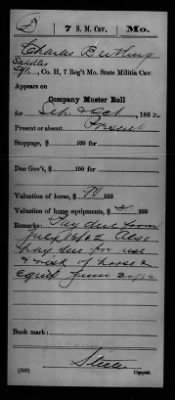 7 S. M. Cav. Mo.
Charles
Co. H, 7 Reg't Mo. State Militia Cav.
Appears on
Company Muster Roll
for Sept & Oct, 186
Present or absent Present
Stoppage, $ 100
Due Gov't, $ 100
Valuation of horse, $ 70 100
Valuation of horse equipments, $ 100
Remarks: Pay due from
July 1862 Also
pay due for use
& risk of horse &
equip from
Book mark:
(358) Copyist.